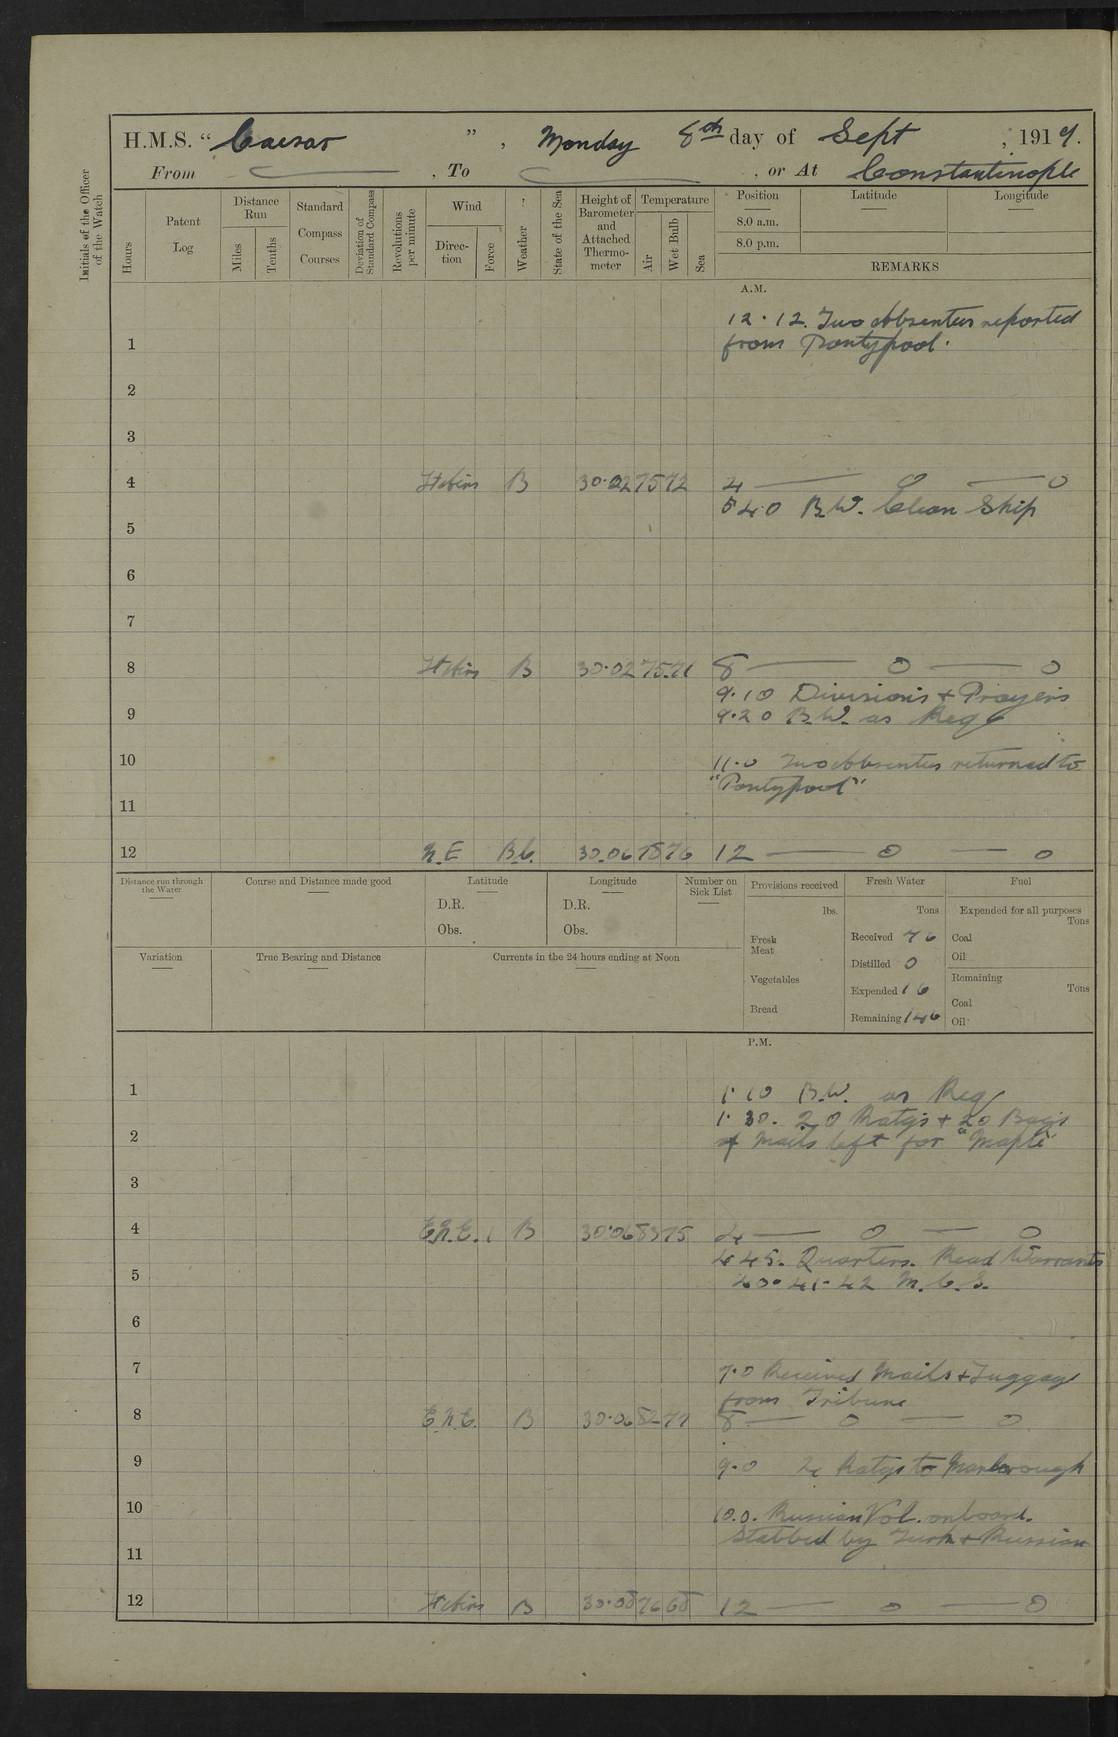 H.M.S. “ Caesar ” , Monday 8th day of Sept , 1919.
From , To , or At Constantinople
Initials of the Officer of the Watch
Hours
Patent Log
Distance Run
Miles
Tenths
Standard Compass Courses
Deviation of Standard Compass
Revolutions per minute
Wind
Direction
Force
Weather
State of the Sea
Height of Barometer and Attached Thermometer
Temperature
Air
Wet Bulb
Sea
Position
Latitude
Longitude
8.0 a.m.
8.0 p.m.
REMARKS
A.M.
12.12. Two Absentees reported
1 from Pontypool.
2
3
4 B 30.02 75 72 4 — 0 — 0
5.40 B.W. Clean Ship
5
6
7
8 B 30.02 75 71 8 — 0 — 0
9.10 Divisions + Prayers
9 9.20 B.W. as Req
10 11.0 Two Absentees returned to
"Pontypool"
11
12 N.E B.C. 30.06 78 76 12 — 0 — 0
Distance run through the Water
Course and Distance made good
Latitude
D.R.
Obs.
Longitude
D.R.
Obs.
Number on Sick List
Provisions received
lbs.
Fresh Meat
Vegetables
Bread
Fresh Water
Tons
Received 76
Distilled 0
Expended 16
Remaining 146
Fuel
Expended for all purposes
Tons
Coal
Oil
Remaining
Tons
Coal
Oil
Variation
True Bearing and Distance
Currents in the 24 hours ending at Noon
P.M.
1 1.10 B.W. as Req
1.30. 20 Ratgs + 20 Bags
2 of Mails left for "Maple"
3
4 E.N.E. 1 B 30.06 83 75 4 — 0 — 0
4.45. Quarters. Read Warrants
5 40. 41. 42 M.C.S.
6
7 7.0 Received Mails + Luggage
from Tribune
8 E.N.E. B 30.06 82 77 8 — 0 — 0
9 9.0 Ratgs to Marlborough
10 10.0. Russian Vol. onboard.
Stabbed by Turk + Russian
11
12 B 30.08 76 68 12 — 0 — 0